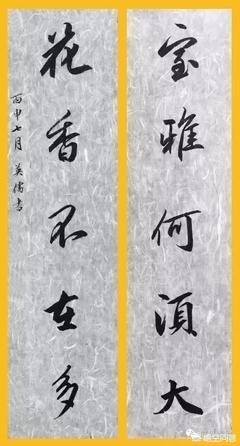 室雅何須大
花香不在多
丙申七月英儒書
悟空问答